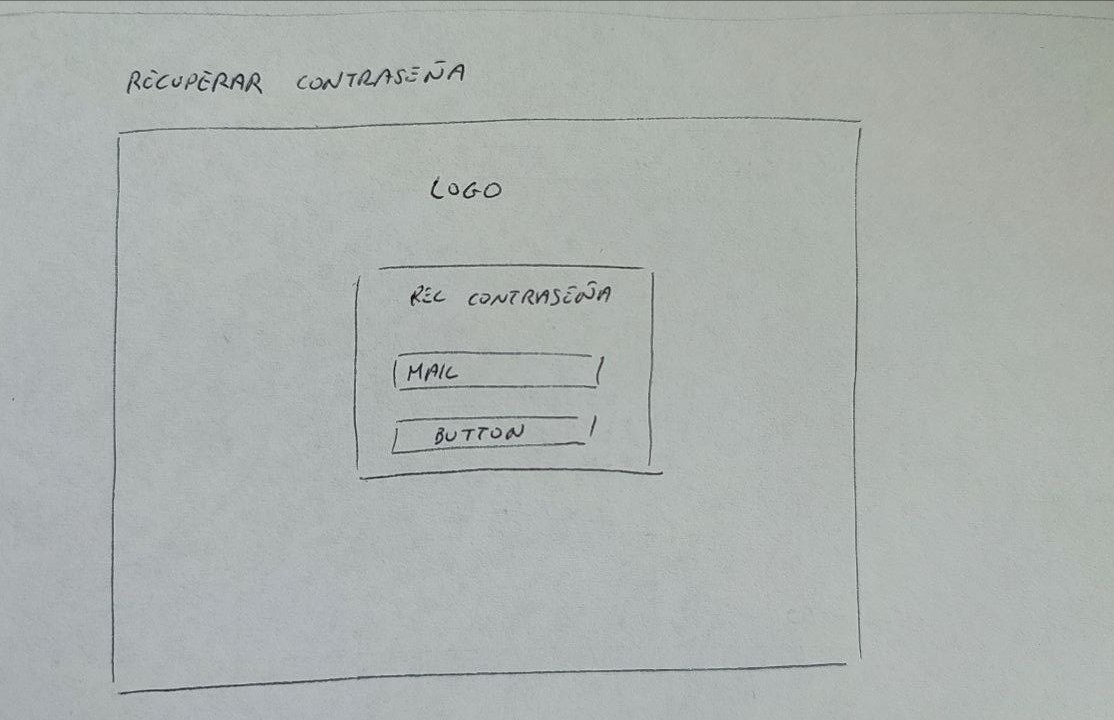 RECUPERAR CONTRASEÑA
LOGO
REC CONTRASEÑA
MAIL
BUTTON